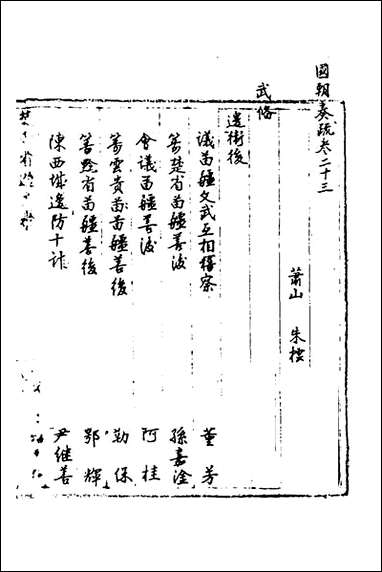 國朝奏疏卷二十三
蕭山 朱橒
武備
邊衛後
議苗疆文武互相稽察 董芳
籌楚省苗疆善後 孫嘉淦
會議苗疆善後 阿桂
籌雲貴苗疆善後 勒保
籌黔省苗疆善後 鄂輝
陳西域邊防十計 尹繼善